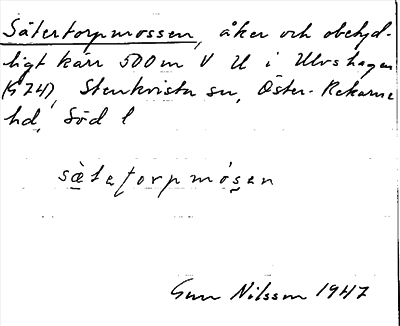 Sätertorpmossen, åker och obetyd-
ligt kärr 500 m V U i Ulvshagen
(974), Stenkvista sn, Öster-Rekarne
hd, Söd l
sätetorpmósen
Gun Nilsson 1947